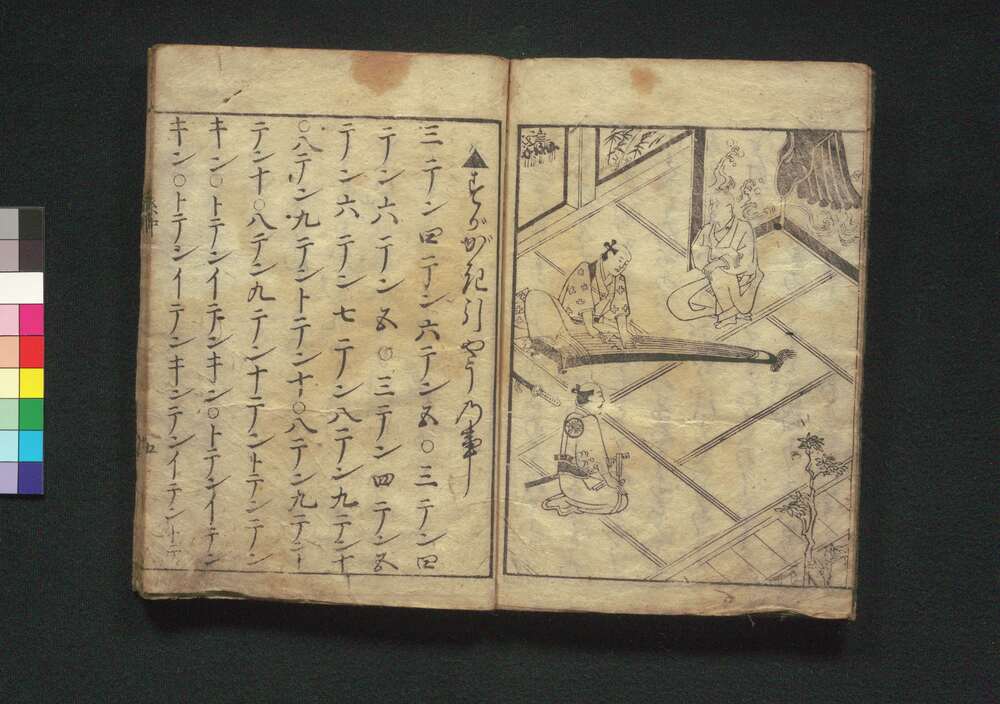 ▲すががき引やうの事
三テン四テン六テン五〇三テン四
テン六テン五〇三テン四テン五
テン六テン七テン八テン九テン十
〇八テン九テントテン十〇八テン九テント
テン十〇八テン九テン十テントテンテン
キン〇トテンイテンキン〇トテンイテン
キン〇トテンイテンキンテンイテントテ